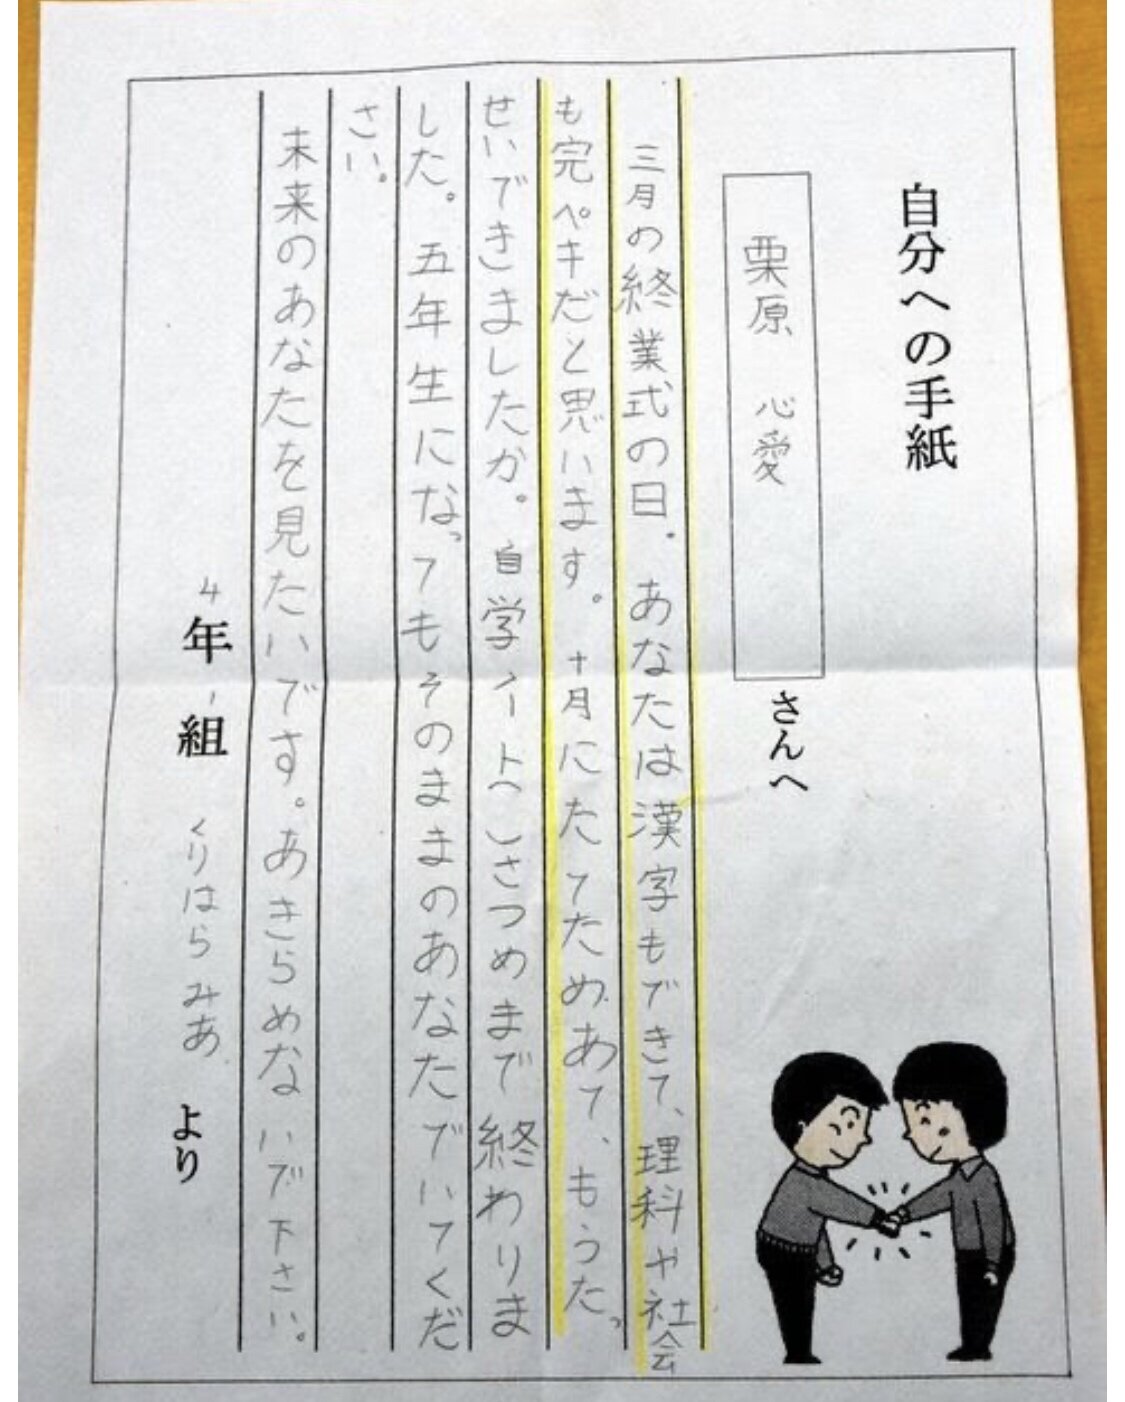 自分への手紙
栗原 心愛 さんへ
三月の終業式の日。あなたは漢字もできて、理科や社会
も完ペキだと思います。十月にたてためあて、もうた
せいできましたか。自学ノート、
さつめまで終わりま
した。五年生になってもそのままのあなたでいてくだ
さい。
未来のあなたを見たいです。あきらめないで下さい。
4年1組 くりはら みあ より